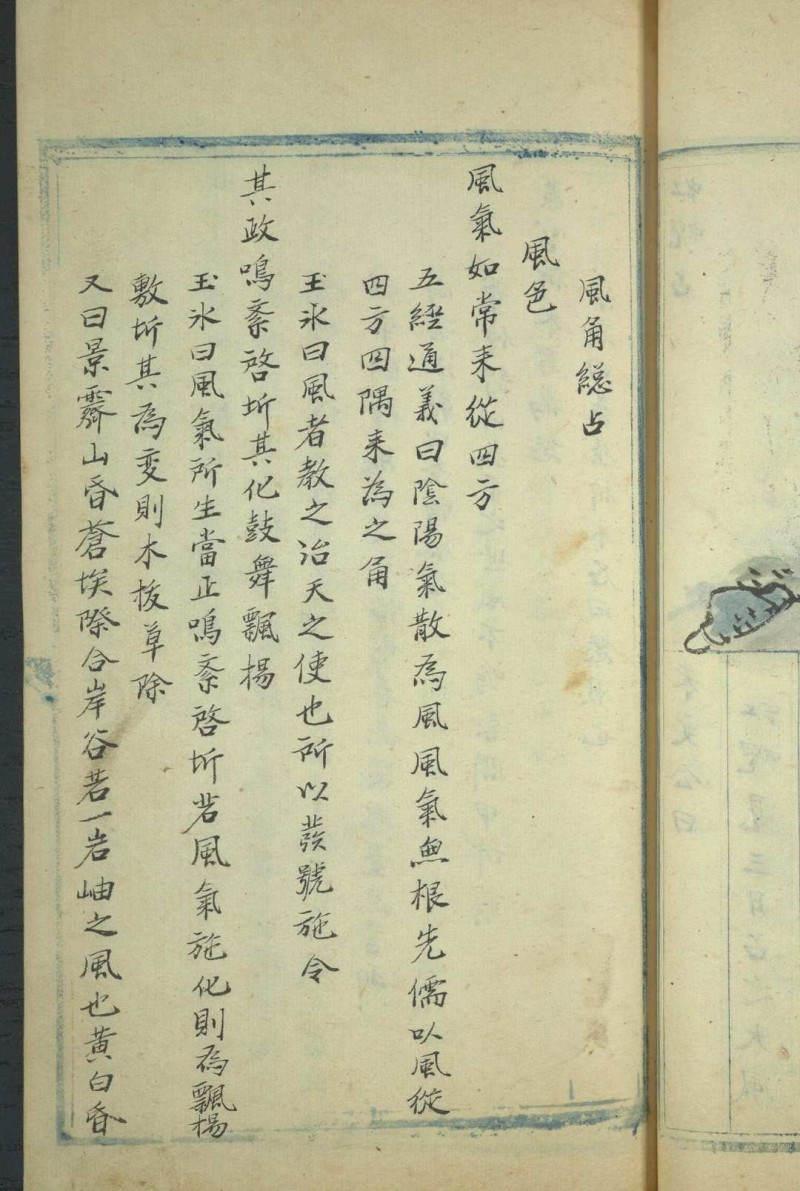 風角總占
風色
風氣如常来從四方
五經通義曰陰陽氣散為風風氣無根先儒以風從
四方四隅来為之角
王氷曰風者教之治天之使也所以發號施令
其政鳴紊啓坼其化鼓舞飄揚
王氷曰風氣所生當正鳴紊啓坼若風氣施化則為飄揚
敷坼其為变則木拔草除
又曰景霽山昏蒼埃際合岸谷若一岩岫之風也黄白昏